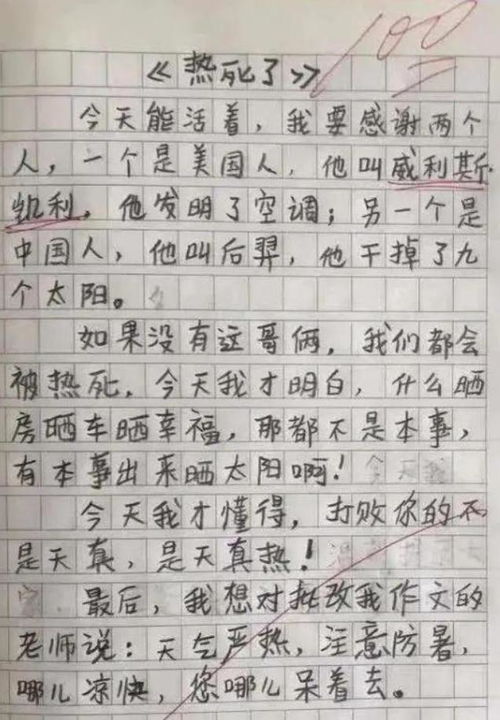 100
《热死了》
今天能活着，我要感谢两个
人，一个是美国人，他叫威利斯·
凯利，他发明了空调；另一个是
中国人，他叫后羿，他干掉了九
个太阳。
如果没有这哥俩，我们都会
被热死，今天我才明白，什么晒
房晒车晒幸福，那都不是本事，
有本事出来晒太阳啊！
今天我才懂得，打败你的不
是天真，是天真热！
最后，我想对批改我作文的
老师说：天气严热，注意防暑，
哪儿凉快，您哪儿呆着去。